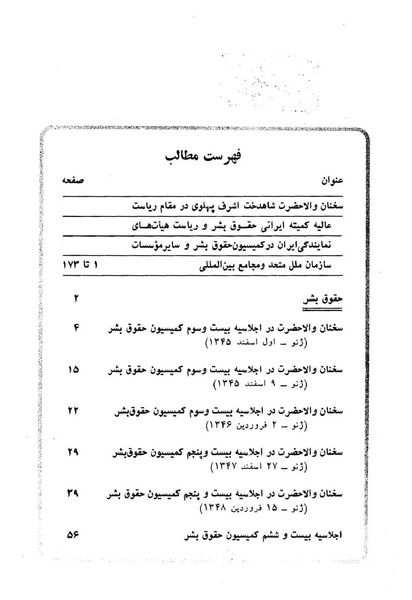 فهرست مطالب
عنوان صفحه
سخنان والاحضرت شاهدخت اشرف پهلوی در مقام ریاست
عالیه کمیته ایرانی حقوق بشر و ریاست هیات‌های
نمایندگی ایران در کمیسیون حقوق بشر و سایر مؤسسات
سازمان ملل متحد ومجامع بین‌المللی ۱ تا ۱۷۳
حقوق بشر ۲
سخنان والاحضرت در اجلاسیه بیست وسوم کمیسیون حقوق بشر ۴
(ژنو ــ اول اسفند ۱۳۴۵)
سخنان والاحضرت در اجلاسیه بیست وسوم کمیسیون حقوق بشر ۱۵
(ژنو ــ ۹ اسفند ۱۳۴۵)
سخنان والاحضرت در اجلاسیه بیست وسوم کمیسیون حقوق بشر ۲۲
(ژنو ــ ۲ فروردین ۱۳۴۶)
سخنان والاحضرت در اجلاسیه بیست وپنجم کمیسیون حقوق بشر ۲۹
(ژنو ــ ۲۷ اسفند ۱۳۴۷)
سخنان والاحضرت در اجلاسیه بیست و پنجم کمیسیون حقوق بشر ۳۹
(ژنو ــ ۱۵ فروردین ۱۳۴۸)
اجلاسیه بیست و ششم کمیسیون حقوق بشر ۵۶